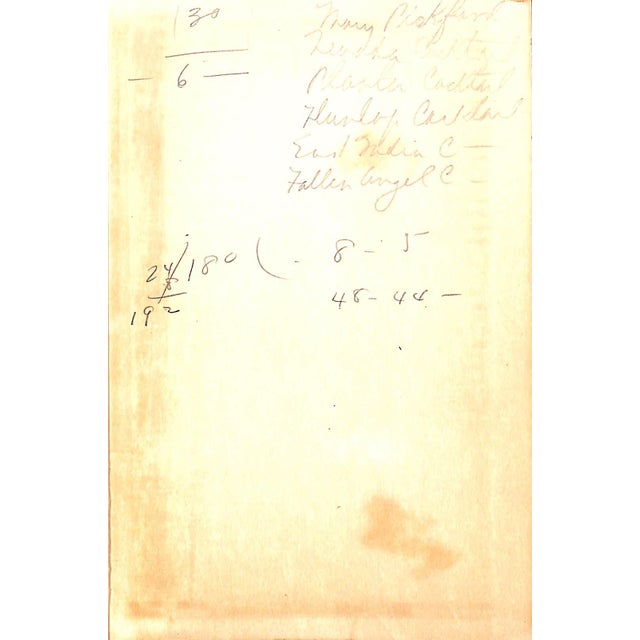 30
— 6 —
Mary Pickford
Planter Cocktail
Dunlop Cocktail
East India C —
Fallen Angel C —
24/180 ( - 8 - 5
8
192
48 - 44 —